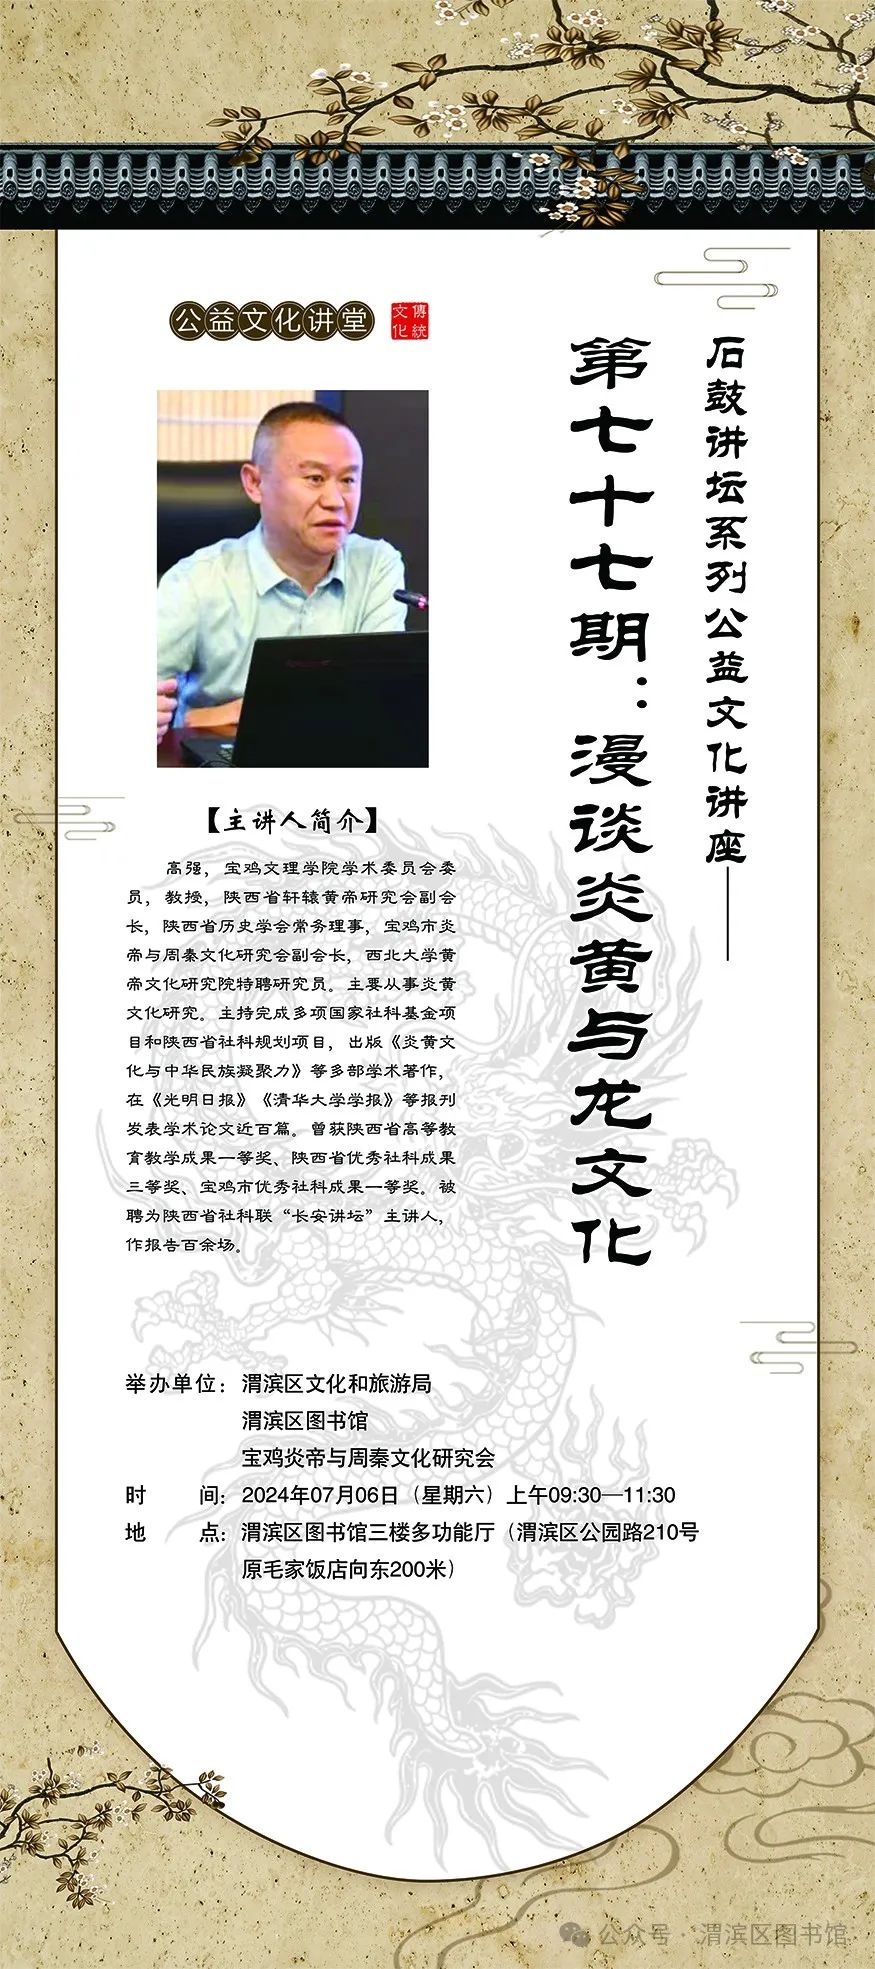 公益文化讲堂
傳統文化
石鼓讲坛系列公益文化讲座——
第七十七期：漫谈炎黄与龙文化
【主讲人简介】
高强，宝鸡文理学院学术委员会委
员，教授，陕西省轩辕黄帝研究会副会
长，陕西省历史学会常务理事，宝鸡市炎
帝与周秦文化研究会副会长，西北大学黄
帝文化研究院特聘研究员。主要从事炎黄
文化研究。主持完成多项国家社科基金项
目和陕西省社科规划项目，出版《炎黄文
化与中华民族凝聚力》等多部学术著作，
在《光明日报》《清华大学学报》等报刊
发表学术论文近百篇。曾获陕西省高等教
育教学成果一等奖、陕西省优秀社科成果
三等奖、宝鸡市优秀社科成果一等奖。被
聘为陕西省社科联“长安讲坛”主讲人，
作报告百余场。
举办单位：渭滨区文化和旅游局
渭滨区图书馆
宝鸡炎帝与周秦文化研究会
时 间：2024年07月06日（星期六）上午09:30—11:30
地 点：渭滨区图书馆三楼多功能厅（渭滨区公园路210号
原毛家饭店向东200米）
公众号·渭滨区图书馆